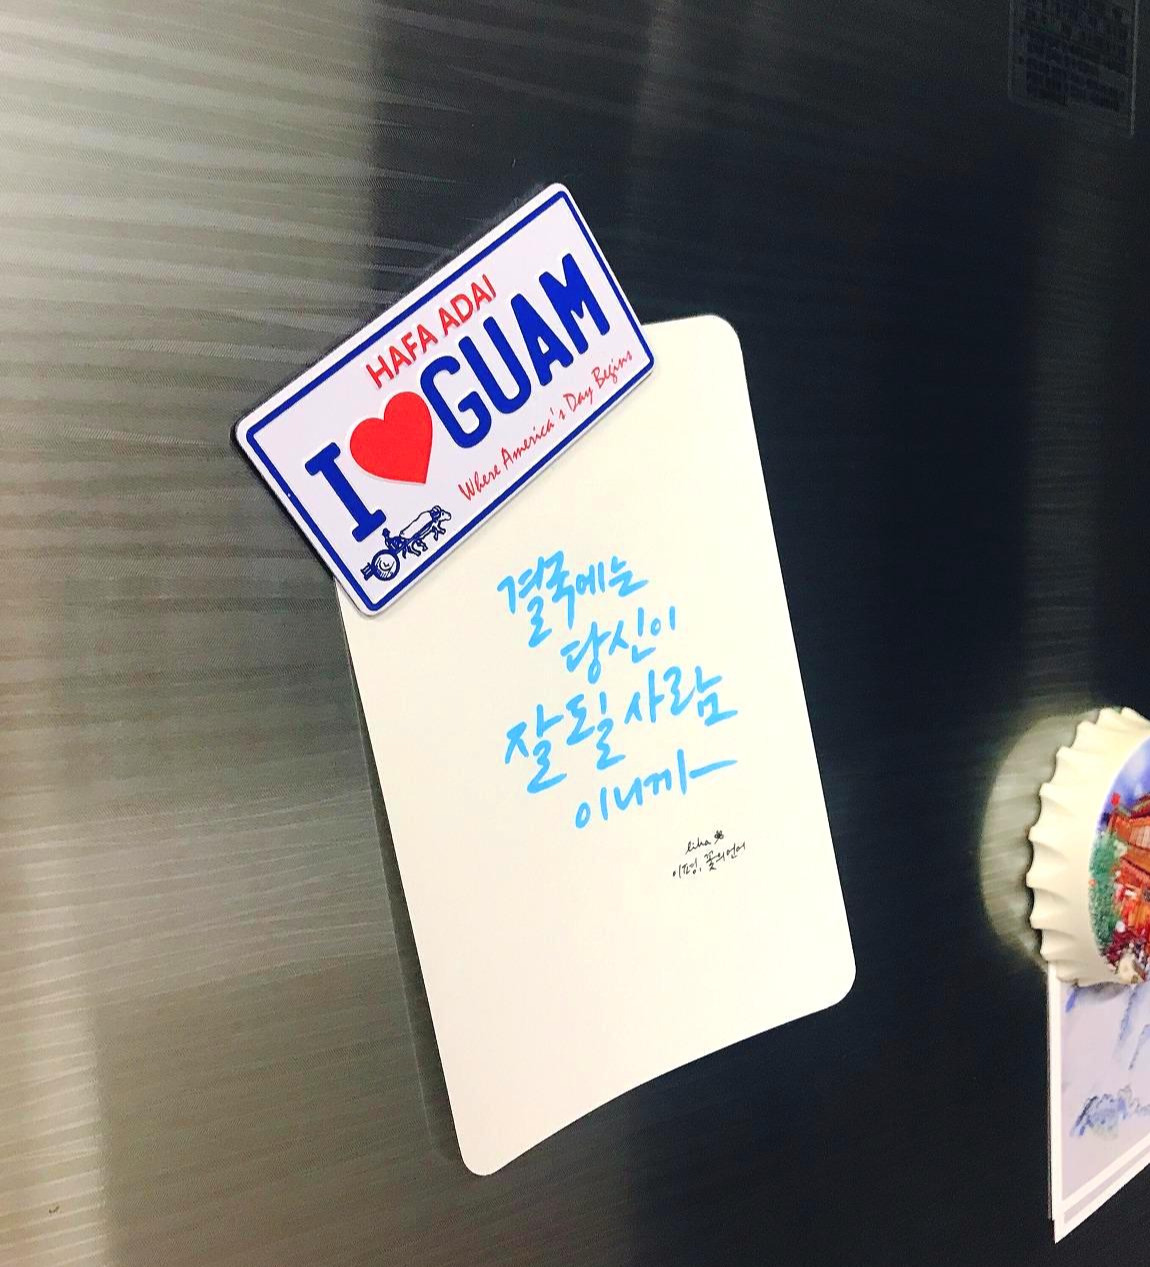 HAFA ADAI
I ❤ GUAM
Where America's Day Begins
결국에는
당신이
잘 될 사람
이니까
liha
이평, 꽃의 언어